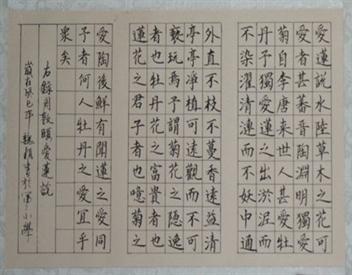 愛蓮説水陸草木之花可
愛者甚蕃晉陶淵明獨愛
菊自李唐来世人甚愛牡
丹予獨愛蓮之出淤泥而
不染濯清漣而不妖中通
外直不枝不蔓香遠益清
亭亭凈植可遠觀而不可
褻玩焉予謂菊花之隱逸
者也牡丹花之富貴者也
蓮花之君子者也噫菊之
愛陶後鮮有聞蓮之愛同
予者何人牡丹之愛宜乎
衆矣
右錄周敦頤愛蓮説
歲在癸巳年 書於 小學